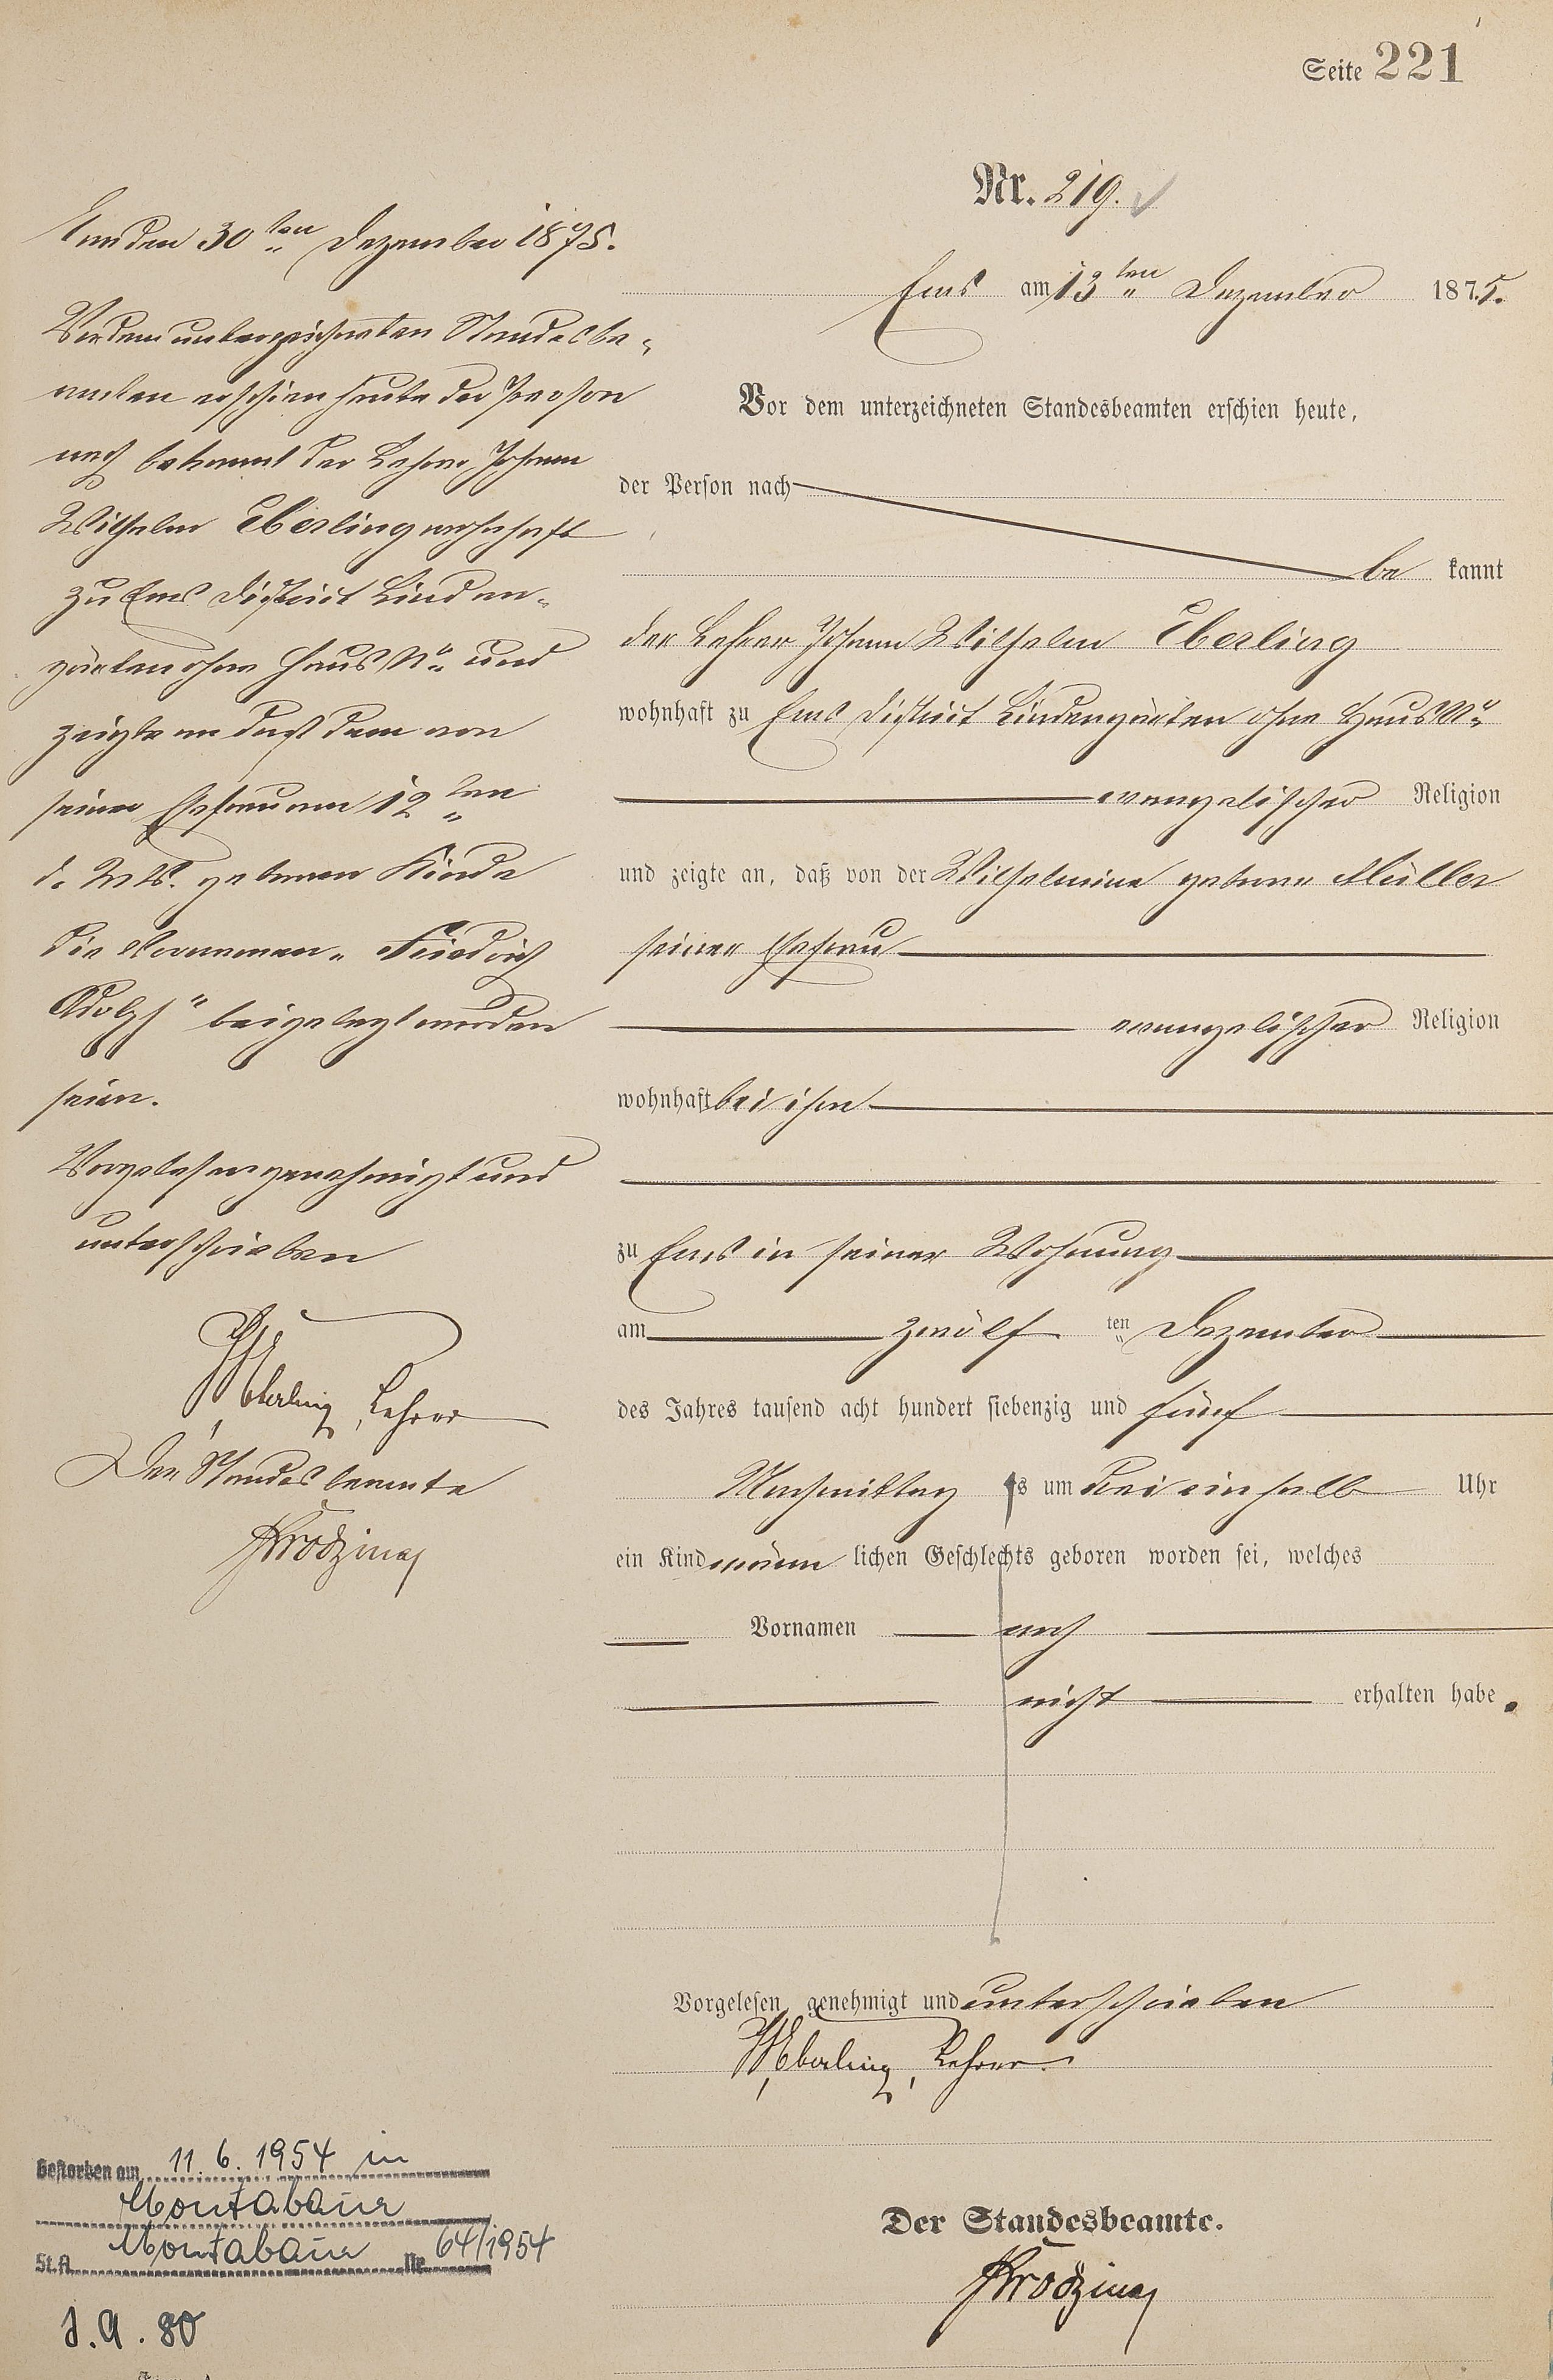 Seite 221
Nr. 219.
Ems am 13ten Dezember 1875.
Vor dem unterzeichneten Standesbeamten erschien heute,
der Person nach
be kannt
der Lehrer Johann Wilhelm Eberling
wohnhaft zu Ems District Lindengärten ohne Haus No
evangelischer Religion
und zeigte an, daß von der Wilhelmine geborne Müller
seiner Ehefrau
evangelischer Religion
wohnhaft bei ihm
zu Ems in seiner Wohnung
am zwölf ten Dezember
des Jahres tausend acht hundert siebenzig und fünf
Nachmittag s um drei einhalb Uhr
ein Kind männ lichen Geschlechts geboren worden sei, welches
Vornamen noch
nicht erhalten habe.
Vorgelesen, genehmigt und unterschrieben
W. Eberling, Lehrer.
Der Standesbeamte.
Ems den 30ten Dezember 1875.
Vor dem unterzeichneten Standesbe-
amten erschien heute der Person
nach bekannt der Lehrer Johann
Wilhelm Eberling wohnhaft
zu Ems District Linden-
gärten ohne Haus No und
zeigte an daß dem von
seiner Ehefrau am 12ten
d. Mts. gebornen Kinde
die Vornamen „Friedrich
Adolph" beigelegt worden
seien.
Vorgelesen genehmigt und
unterschrieben
Eberling, Lehrer
Der Standesbeamte
Gestorben am 11.6.1954 in
Montabaur
St.A. Montabaur Nr. 64/1954